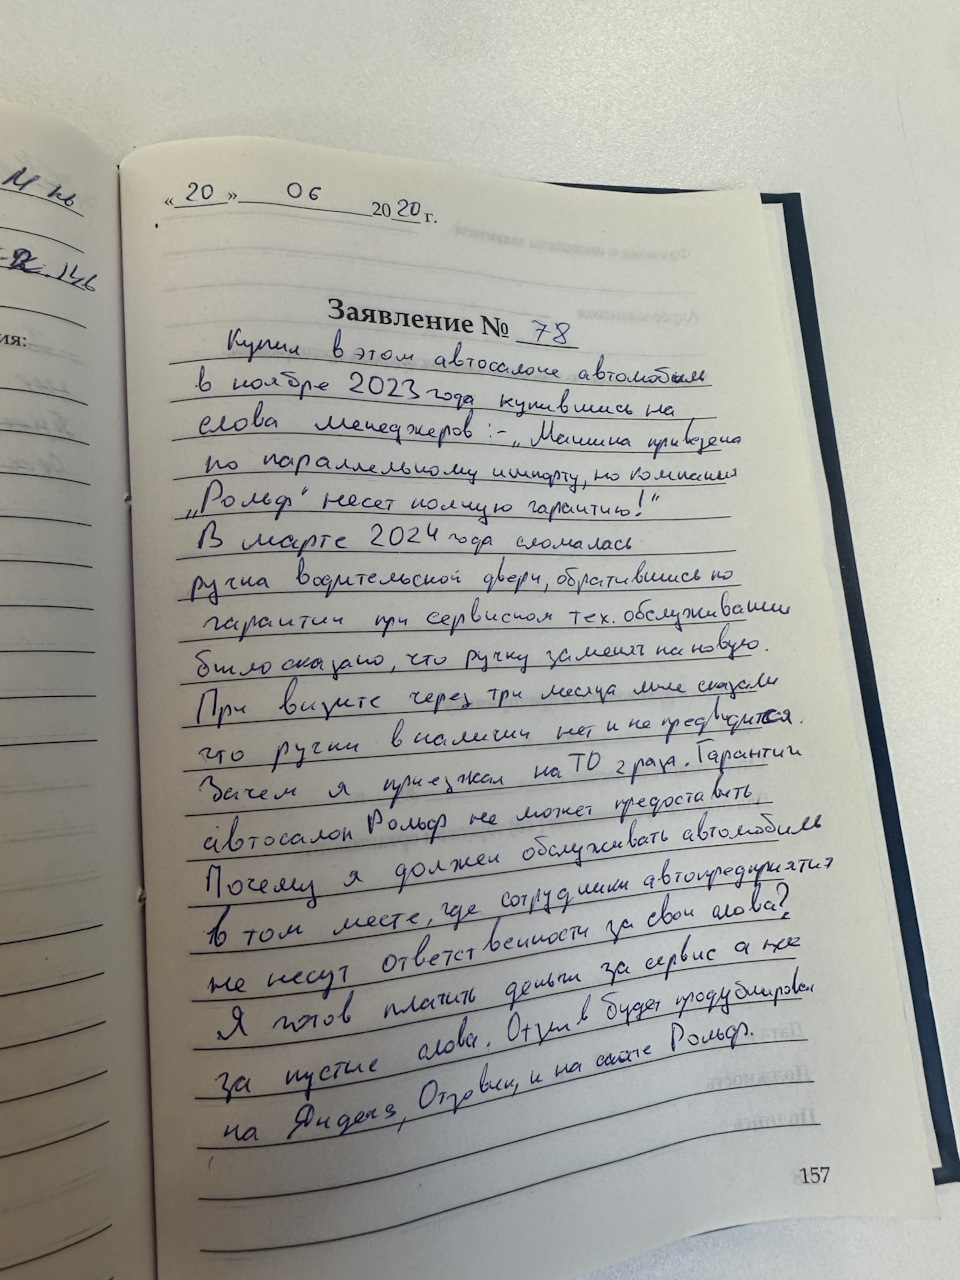 «20» 06 2020 г.
Заявление № 78
Купил в этом автосалоне автомобиль
в ноябре 2023 года купившись на
слова менеджеров :- „Машина привезена
по параллельному импорту, но компания
„Рольф" несет полную гарантию!"
В марте 2024 года сломалась
ручка водительской двери, обратившись по
гарантии при сервисном тех. обслуживании
было сказано, что ручку заменят на новую.
При визите через три месяца мне сказали
что ручки в наличии нет и не предвидится.
Зачем я приезжал на ТО 2 раза. Гарантии
автосалон Рольф не может предоставить.
Почему я должен обслуживать автомобиль
в том месте, где сотрудники автопредприятия
не несут ответственности за свои слова?
Я готов платить деньги за сервис а не
за пустые слова. Отзыв будет продублирован
на Яндекс, Отзовик, и на сайте Рольф.
157
ия: